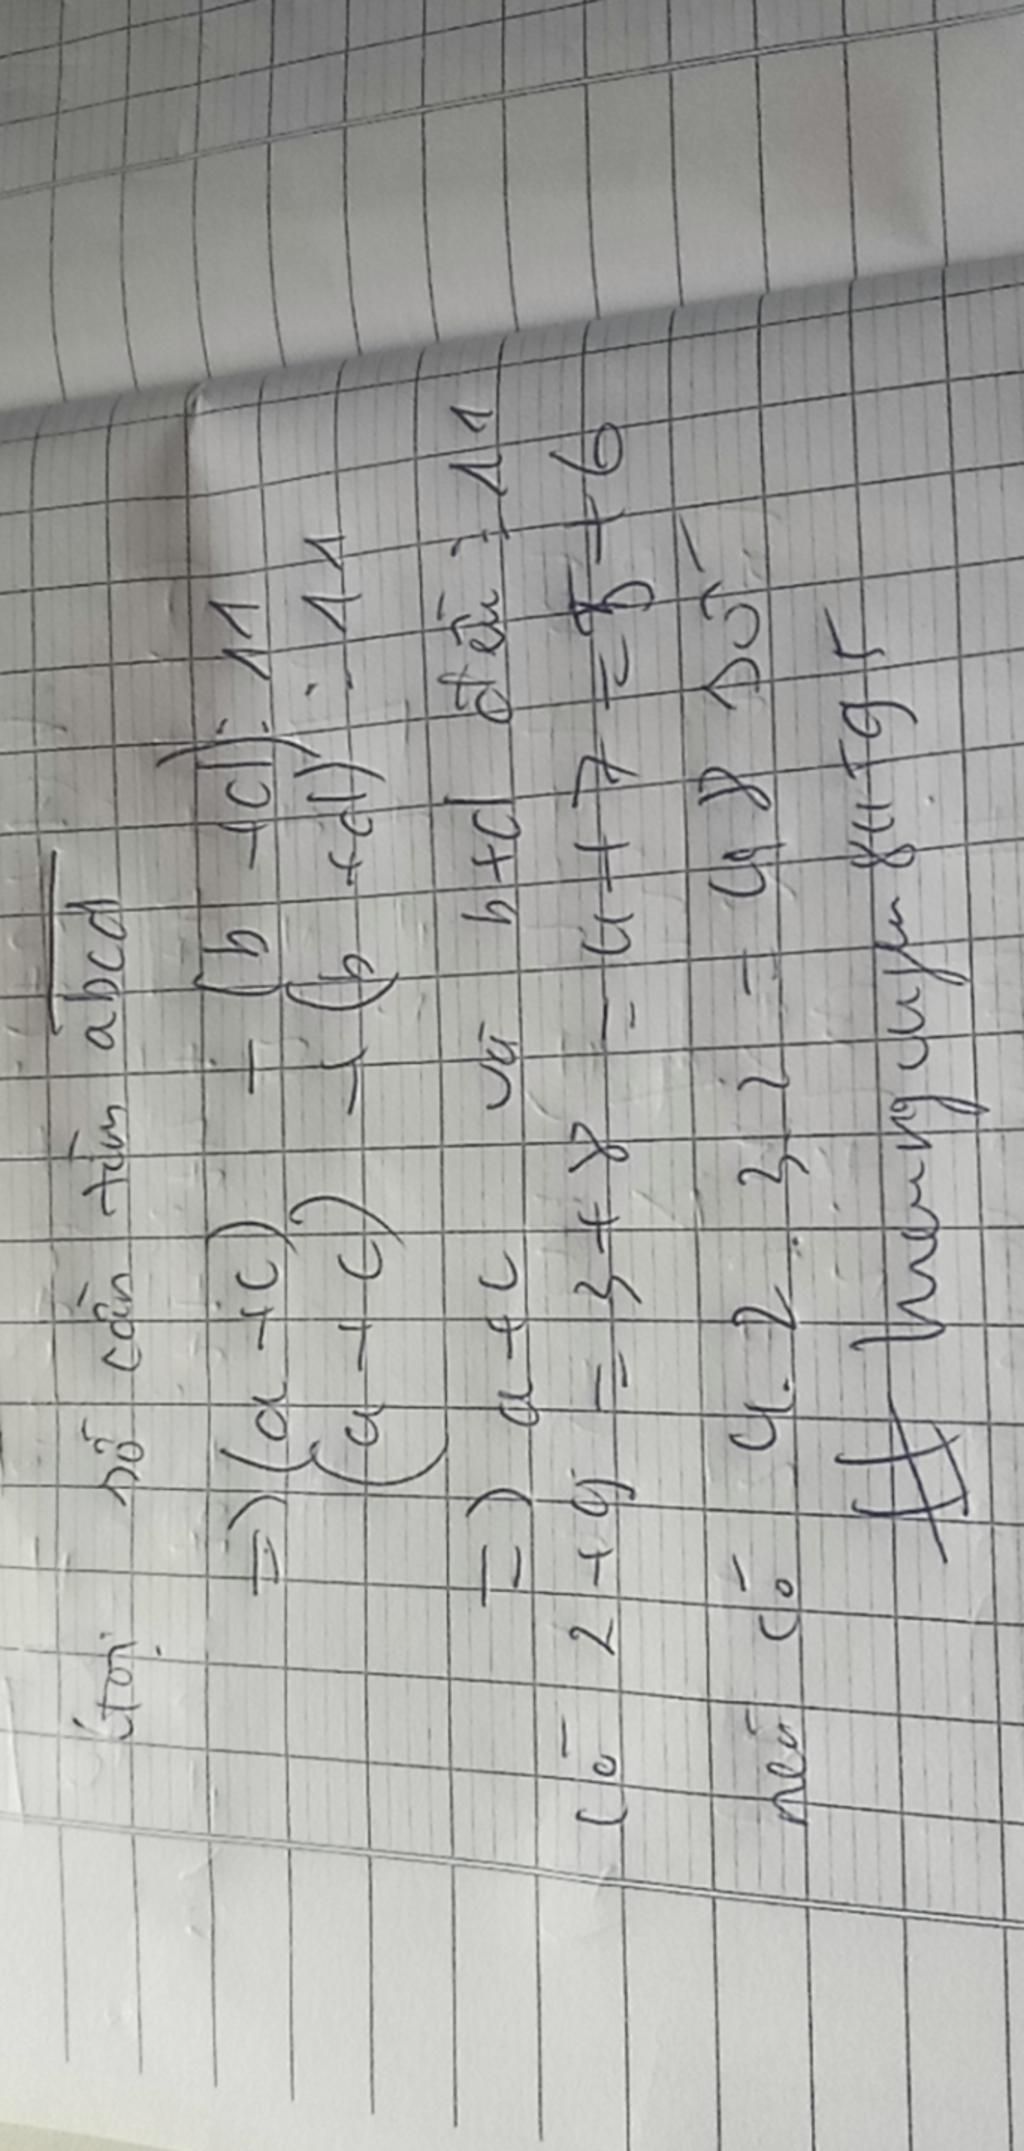 Gọi số cần tìm abcd
=) (a+c) - (b+d) ⋮ 11
(a+c) + (b+d) ⋮ 11
=) a+c và b+d đều ⋮ 11
Có 2+9 = 3+8 = 4+7 = 5+6
nên có 4.2.3.2 = 48 số
# huongcuyen8tt